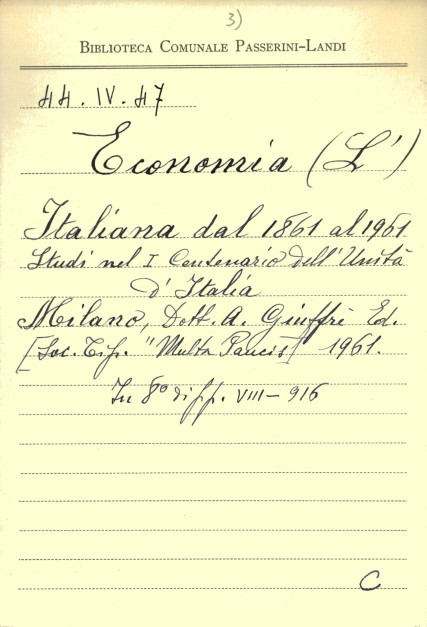 3)
BIBLIOTECA COMUNALE PASSERINI-LANDI
44. IV. 47
Economia (L')
Italiana dal 1861 al 1961
Studi nel I Centenario dell'Unità
d'Italia
Milano, Dott. A. Giuffrè Ed.
[Soc. Tip. "Multa Paucis"] 1961.
In 8° di pp. VIII - 916
C